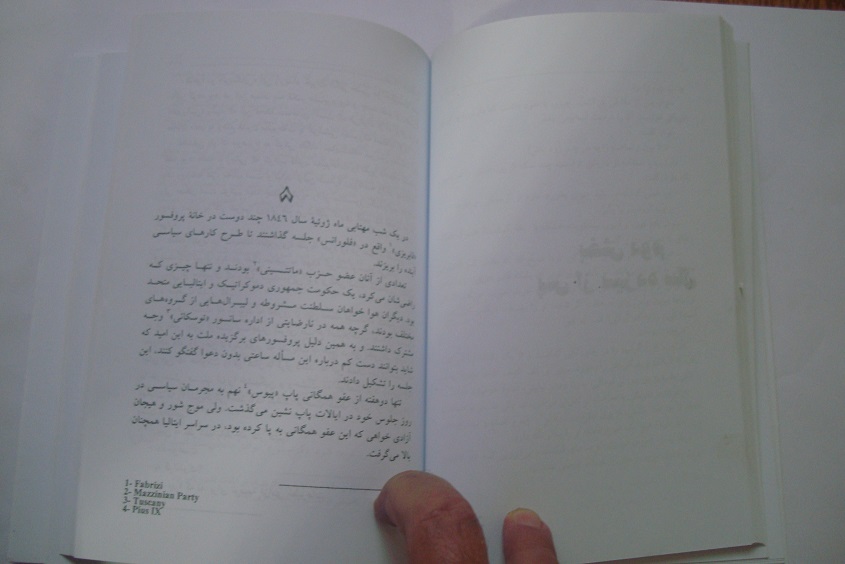 ۸
در یک شب مهتابی ماه ژوئیهٔ سال ۱۸۴۶ چند دوست در خانهٔ پروفسور
«فابریزی»۱ واقع در «فلورانس» جلسه گذاشتند تا طرح کارهای سیاسی
آینده را بریزند.
تعدادی از آنان عضو حزب «ماتسینی»۲ بودند و تنها چیزی که
راضی‌شان می‌کرد، یک حکومت جمهوری دموکراتیک و ایتالیایی متحد
بود دیگران هوا خواهان سلطنت مشروطه و لیبرال‌هایی از گروه‌های
مختلف بودند، گرچه همه در نارضایتی از اداره سانسور «توسکانی»۳ وجه
مشترک داشتند. و به همین دلیل پروفسورهای برگزیده ملت به این امید که
شاید بتوانند دست کم درباره این مسأله ساعتی بدون دعوا گفتگو کنند. این
جلسه را تشکیل دادند.
تنها دوهفته از عفو همگانی پاپ «پیوس»۴ نهم به مجرمان سیاسی در
روز جلوس خود در ایالات پاپ نشین می‌گذشت. ولی موج شور و هیجان
آزادی خواهی که این عفو همگانی به پا کرده بود، در سراسر ایتالیا همچنان
بالا می‌گرفت.
1- Fabrizi
2- Mazzinian Party
3- Tuscany
4- Pius IX